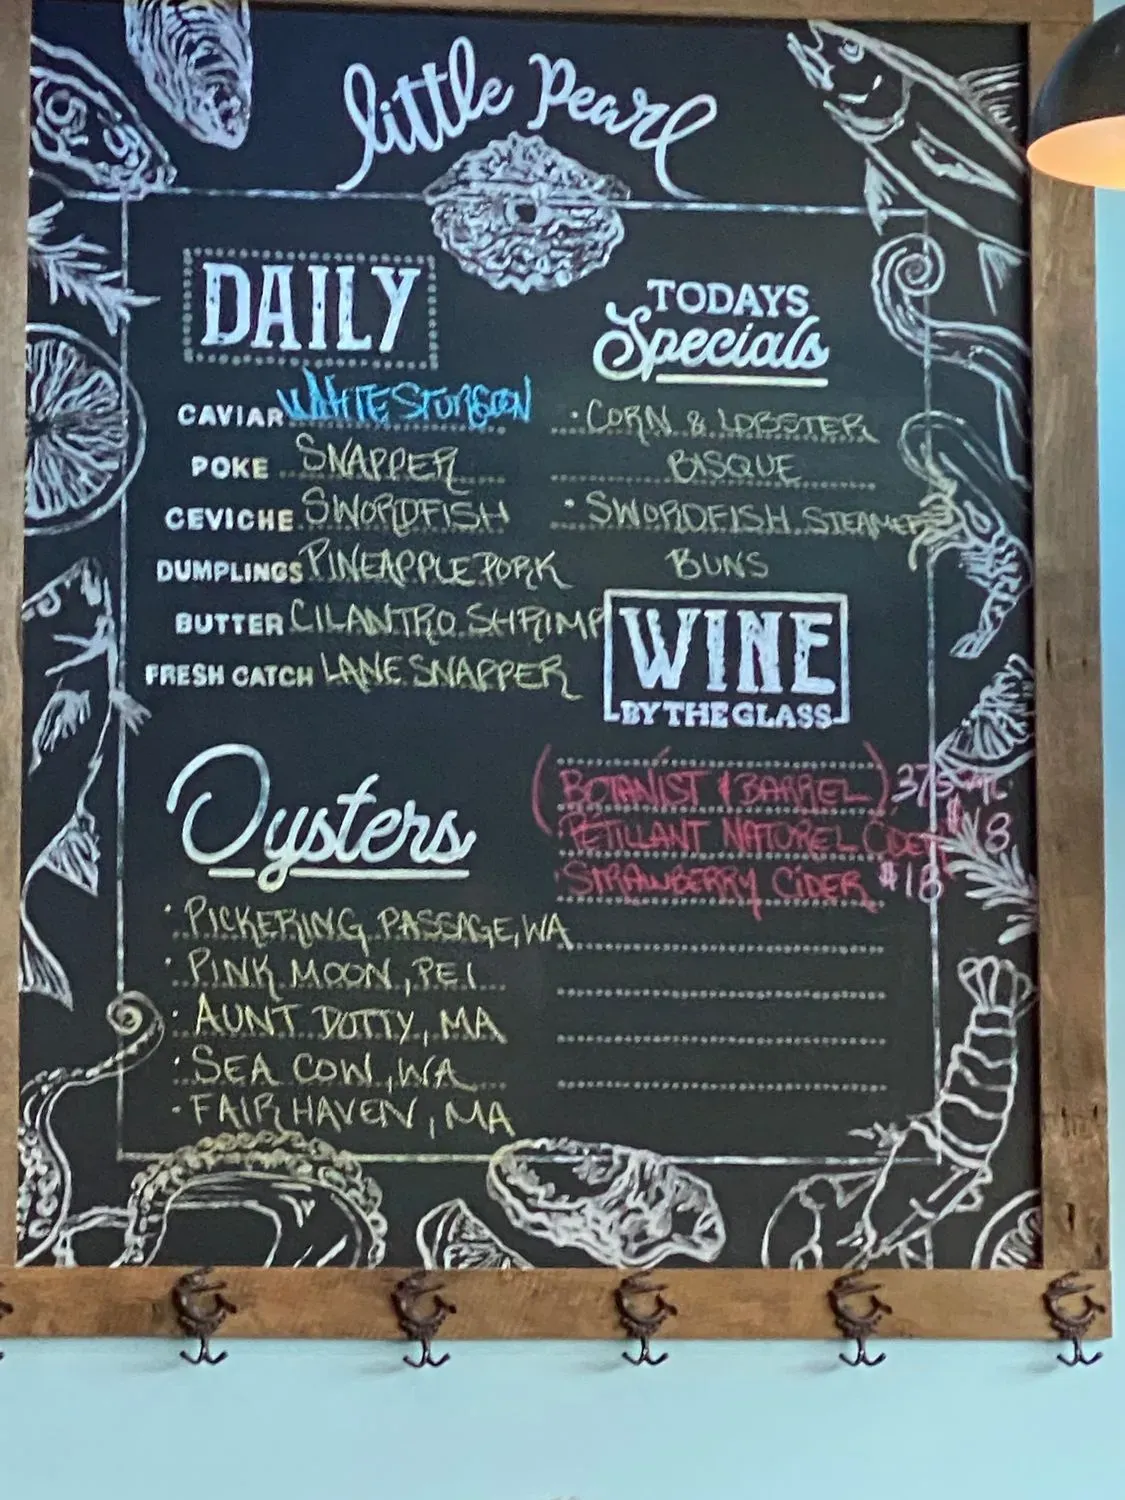 little pearl
DAILY
CAVIAR WHITE STURGEON
POKE SNAPPER
CEVICHE SWORDFISH
DUMPLINGS PINEAPPLE PORK
BUTTER CILANTRO SHRIMP
FRESH CATCH LANE SNAPPER
TODAYS
Specials
• CORN & LOBSTER
BISQUE
• SWORDFISH STEAMED
BUNS
WINE
BY THE GLASS
(BOTANIST & BARREL)
PETILLANT NATUREL
STRAWBERRY CIDER $18
Oysters
• PICKERING PASSAGE, WA
• PINK MOON, PEI
• AUNT DOTTY, MA
• SEA COW, WA
• FAIR HAVEN, MA